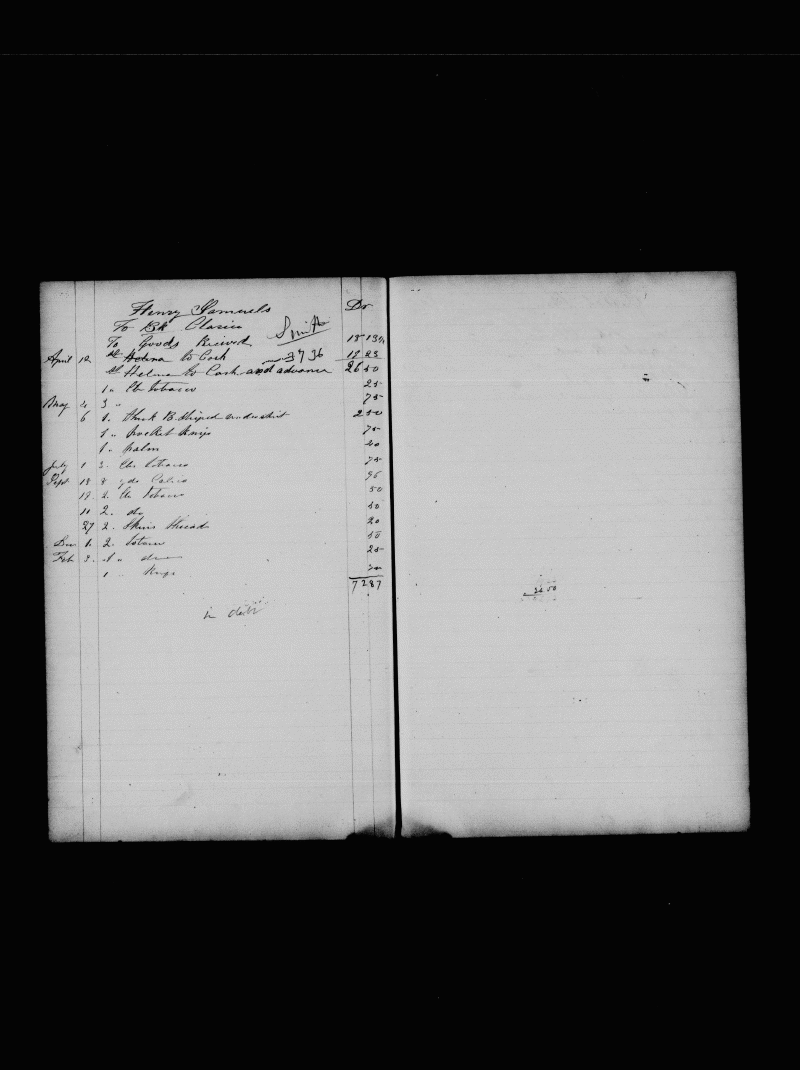 Henry Samuels Dr
To Bk Clarice
To Goods Recived Smith 18 13
April 12 St Helena to Cash 37 36 19 23
St Helena to Cash and advance 26 50
1 " Lb tobacco 25
May 4 3 " 75
6 1. thick B. striped undershirt 2 50
1 " Pocket Knife 75
1 " palm 20
July 1 3. Lbs tobacco 75
Sept 18 8 yds Calico 96
19 2. Lb Tobacco 50
11 2. do 50
27 2. Skins thread 20
Dec 1. 2. tobacco 50
Feb 3. 1 " 25
1 " Knife
72 87
in debt
36 50